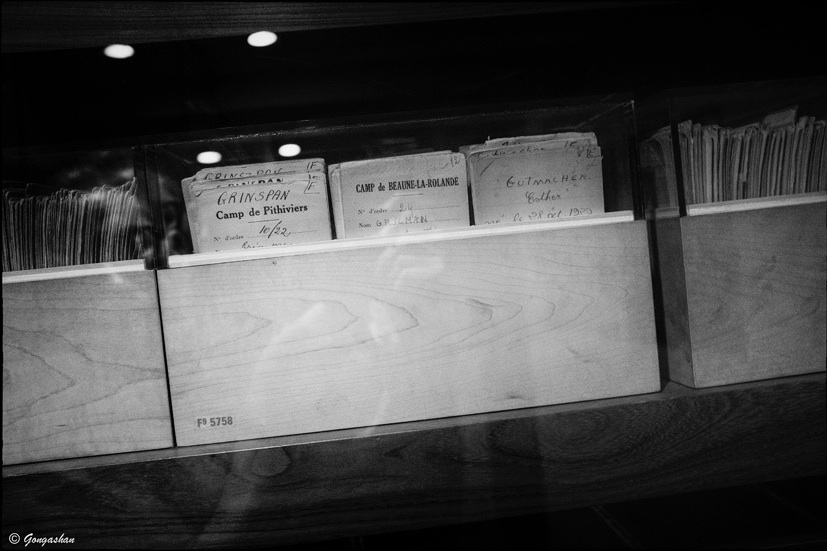 GRINSPAN 1F
GRINSPAN 1F
GRINSPAN
Camp de Pithiviers
N° d'ordre 10/22
CAMP de BEAUNE-LA-ROLANDE
N° d'ordre 24
Nom
GUTMACHER
Esther
F9 5758
© Gongashan